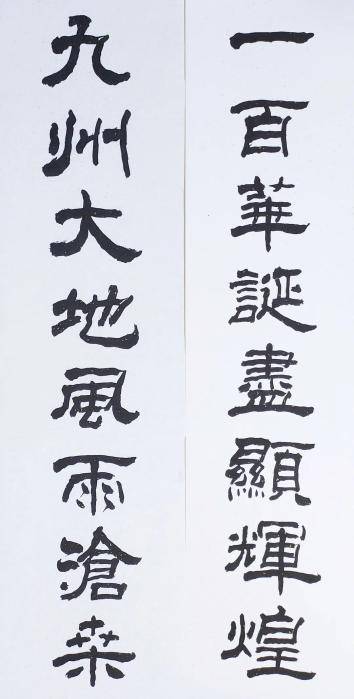 一百華誕盡顯輝煌
九州大地風雨滄桒